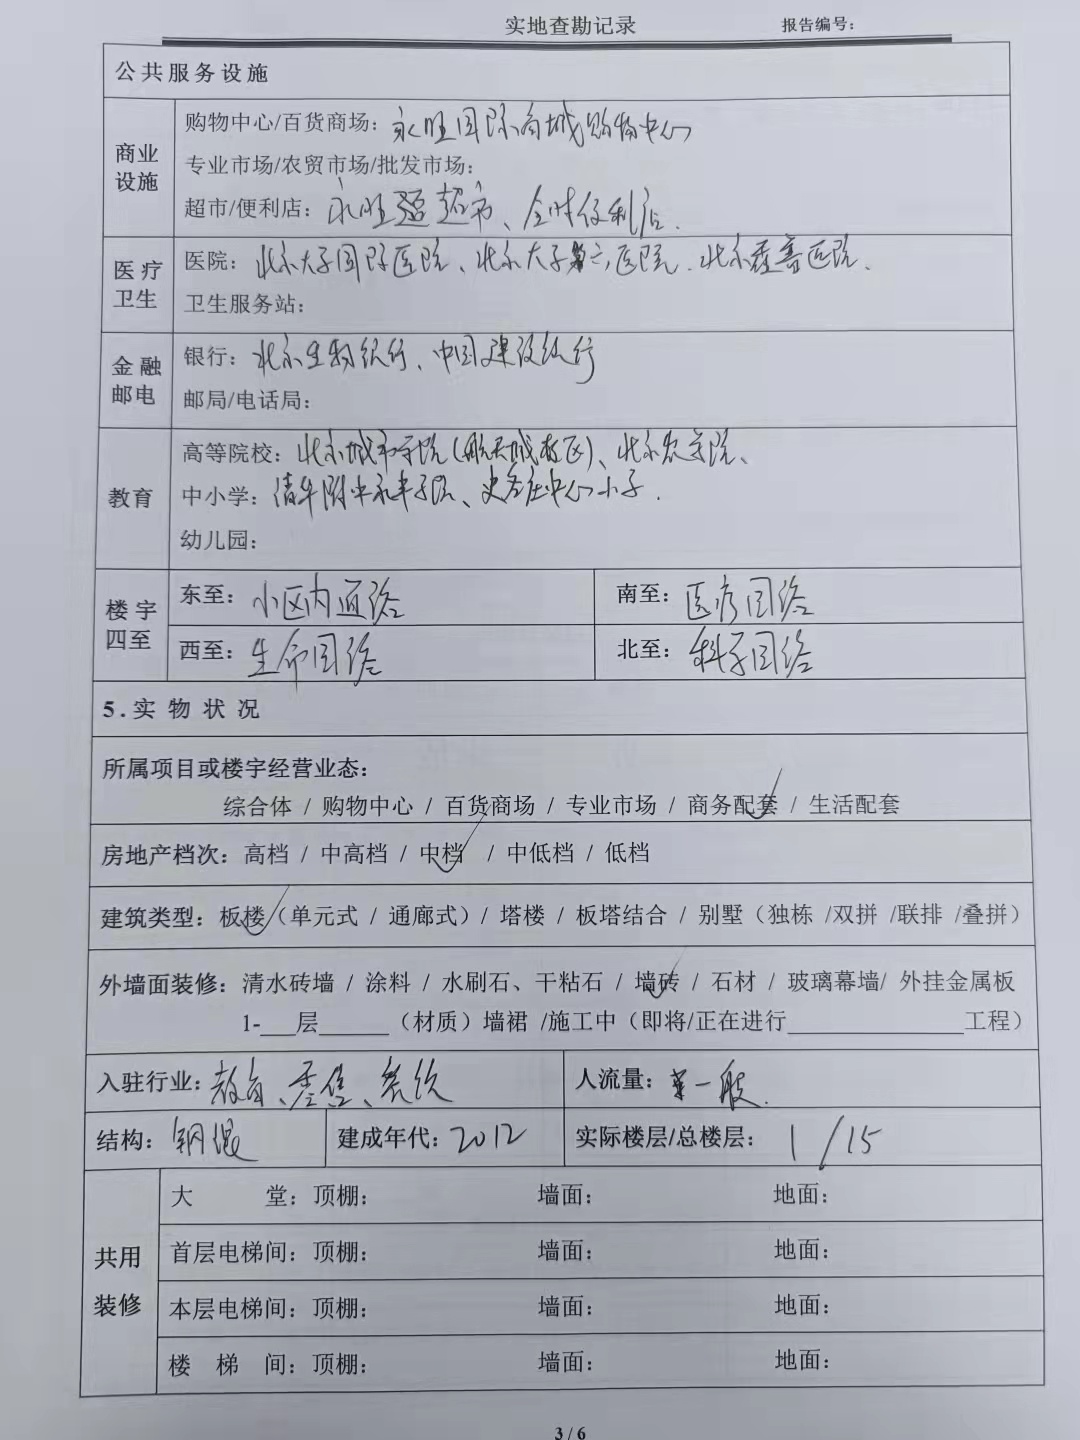 实地查勘记录 报告编号：
公共服务设施
商业设施
购物中心/百货商场：永旺国际商城购物中心
专业市场/农贸市场/批发市场：
超市/便利店：永旺超市、全时便利店.
医疗卫生
医院：北京大学国际医院、北京大学第六医院.北京 善医院.
卫生服务站：
金融邮电
银行：北京 银行、中国建设银行
邮局/电话局：
教育
高等院校：北京城市学院（航天城校区）、北京农 院、
中小学：清华附中永丰学院、史各庄中心小学.
幼儿园：
楼宇四至
东至：小区内道路 南至：医疗园路
西至：生命园路 北至：科学园路
5.实物状况
所属项目或楼宇经营业态：
综合体 / 购物中心 / 百货商场 / 专业市场 / 商务配套 / 生活配套
房地产档次：高档 / 中高档 / 中档 / 中低档 / 低档
建筑类型：板楼（单元式 / 通廊式）/ 塔楼 / 板塔结合 / 别墅（独栋 /双拼 /联排 /叠拼）
外墙面装修：清水砖墙 / 涂料 / 水刷石、干粘石 / 墙砖 / 石材 / 玻璃幕墙/ 外挂金属板
1-___层______（材质）墙裙 /施工中（即将/正在进行_______________工程）
入驻行业：教育、零售、餐饮 人流量：一般.
结构：钢混 建成年代：2012 实际楼层/总楼层：1/15
共用装修
大堂：顶棚： 墙面： 地面：
首层电梯间：顶棚： 墙面： 地面：
本层电梯间：顶棚： 墙面： 地面：
楼梯间：顶棚： 墙面： 地面：
3 / 6